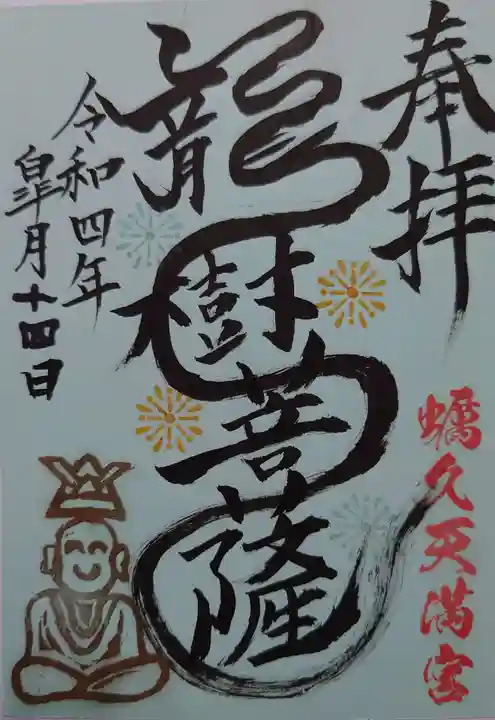 奉拝
龍樹菩薩
令和四年
皐月十四日
蠣久天満宮